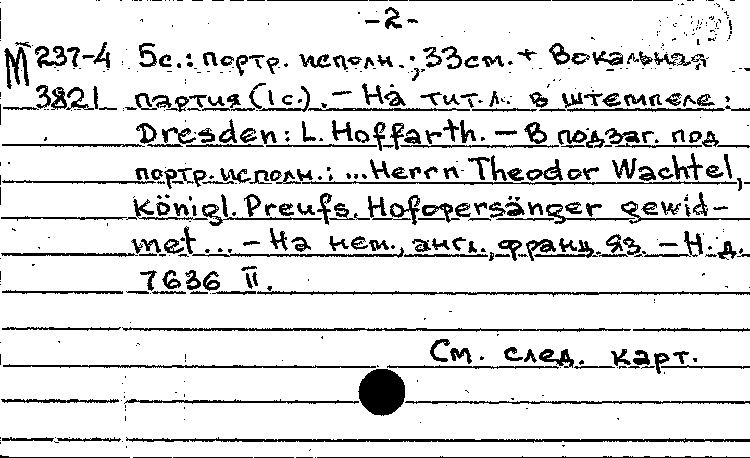 -2-
М 237-4 5с.: портр. исполн.; 33см. + Вокальная
3821 партия (1с.). - На тит.л. в штемпеле:
Dresden: L. Hoffarth. - В подзаг. под
портр. исполн.: ...Herrn Theodor Wachtel,
Königl. Preufs. Hofopersänger gewid-
met... - На нем., англ., франц. яз. - Н.д.
7636 II.
См. след. карт.